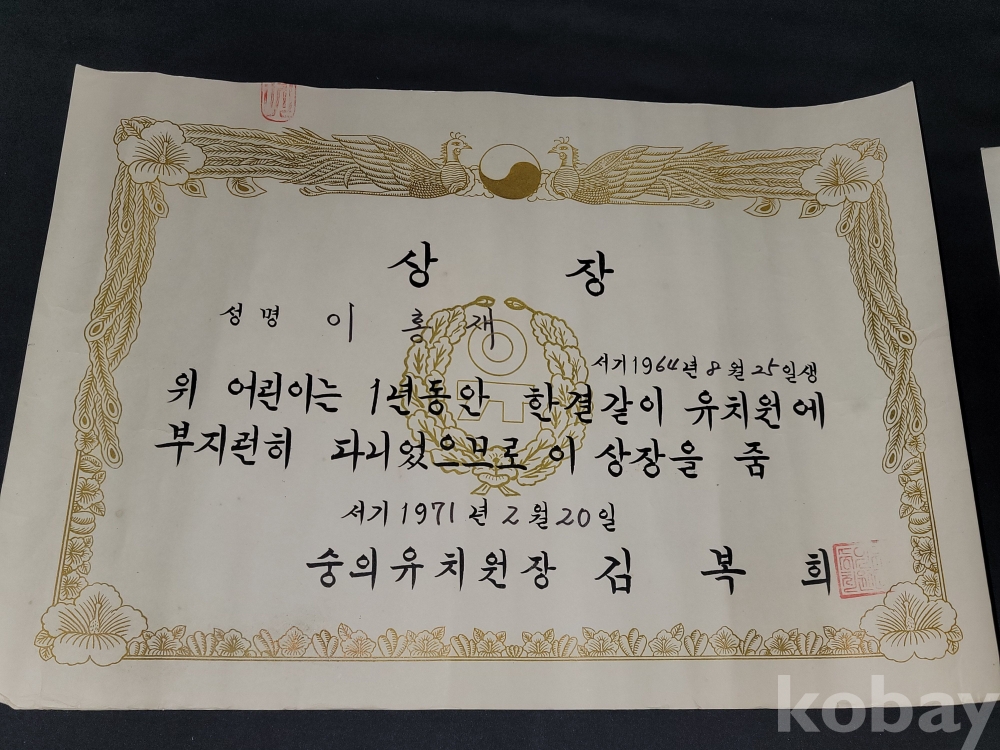 상 장
성명 이 홍 재
서기 1964년 8월 25일생
위 어린이는 1년동안 한결같이 유치원에
부지런히 다니었으므로 이 상장을 줌
서기 1971년 2월 20일
숭의유치원장 김 복 희
kobay